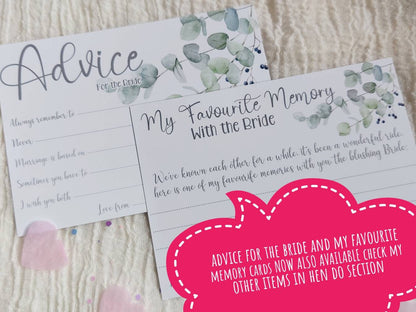 Advice
For the Bride
Always remember to
Never
Marriage is based on
Sometimes you have to
I wish you both
Love from
My Favourite Memory
With the Bride
We've known each other for a while, it's been a wonderful ride,
here is one of my favorite memories with you the blushing Bride.
ADVICE FOR THE BRIDE AND MY FAVOURITE
MEMORY CARDS NOW ALSO AVAILABLE CHECK MY
OTHER ITEMS IN HEN DO SECTION